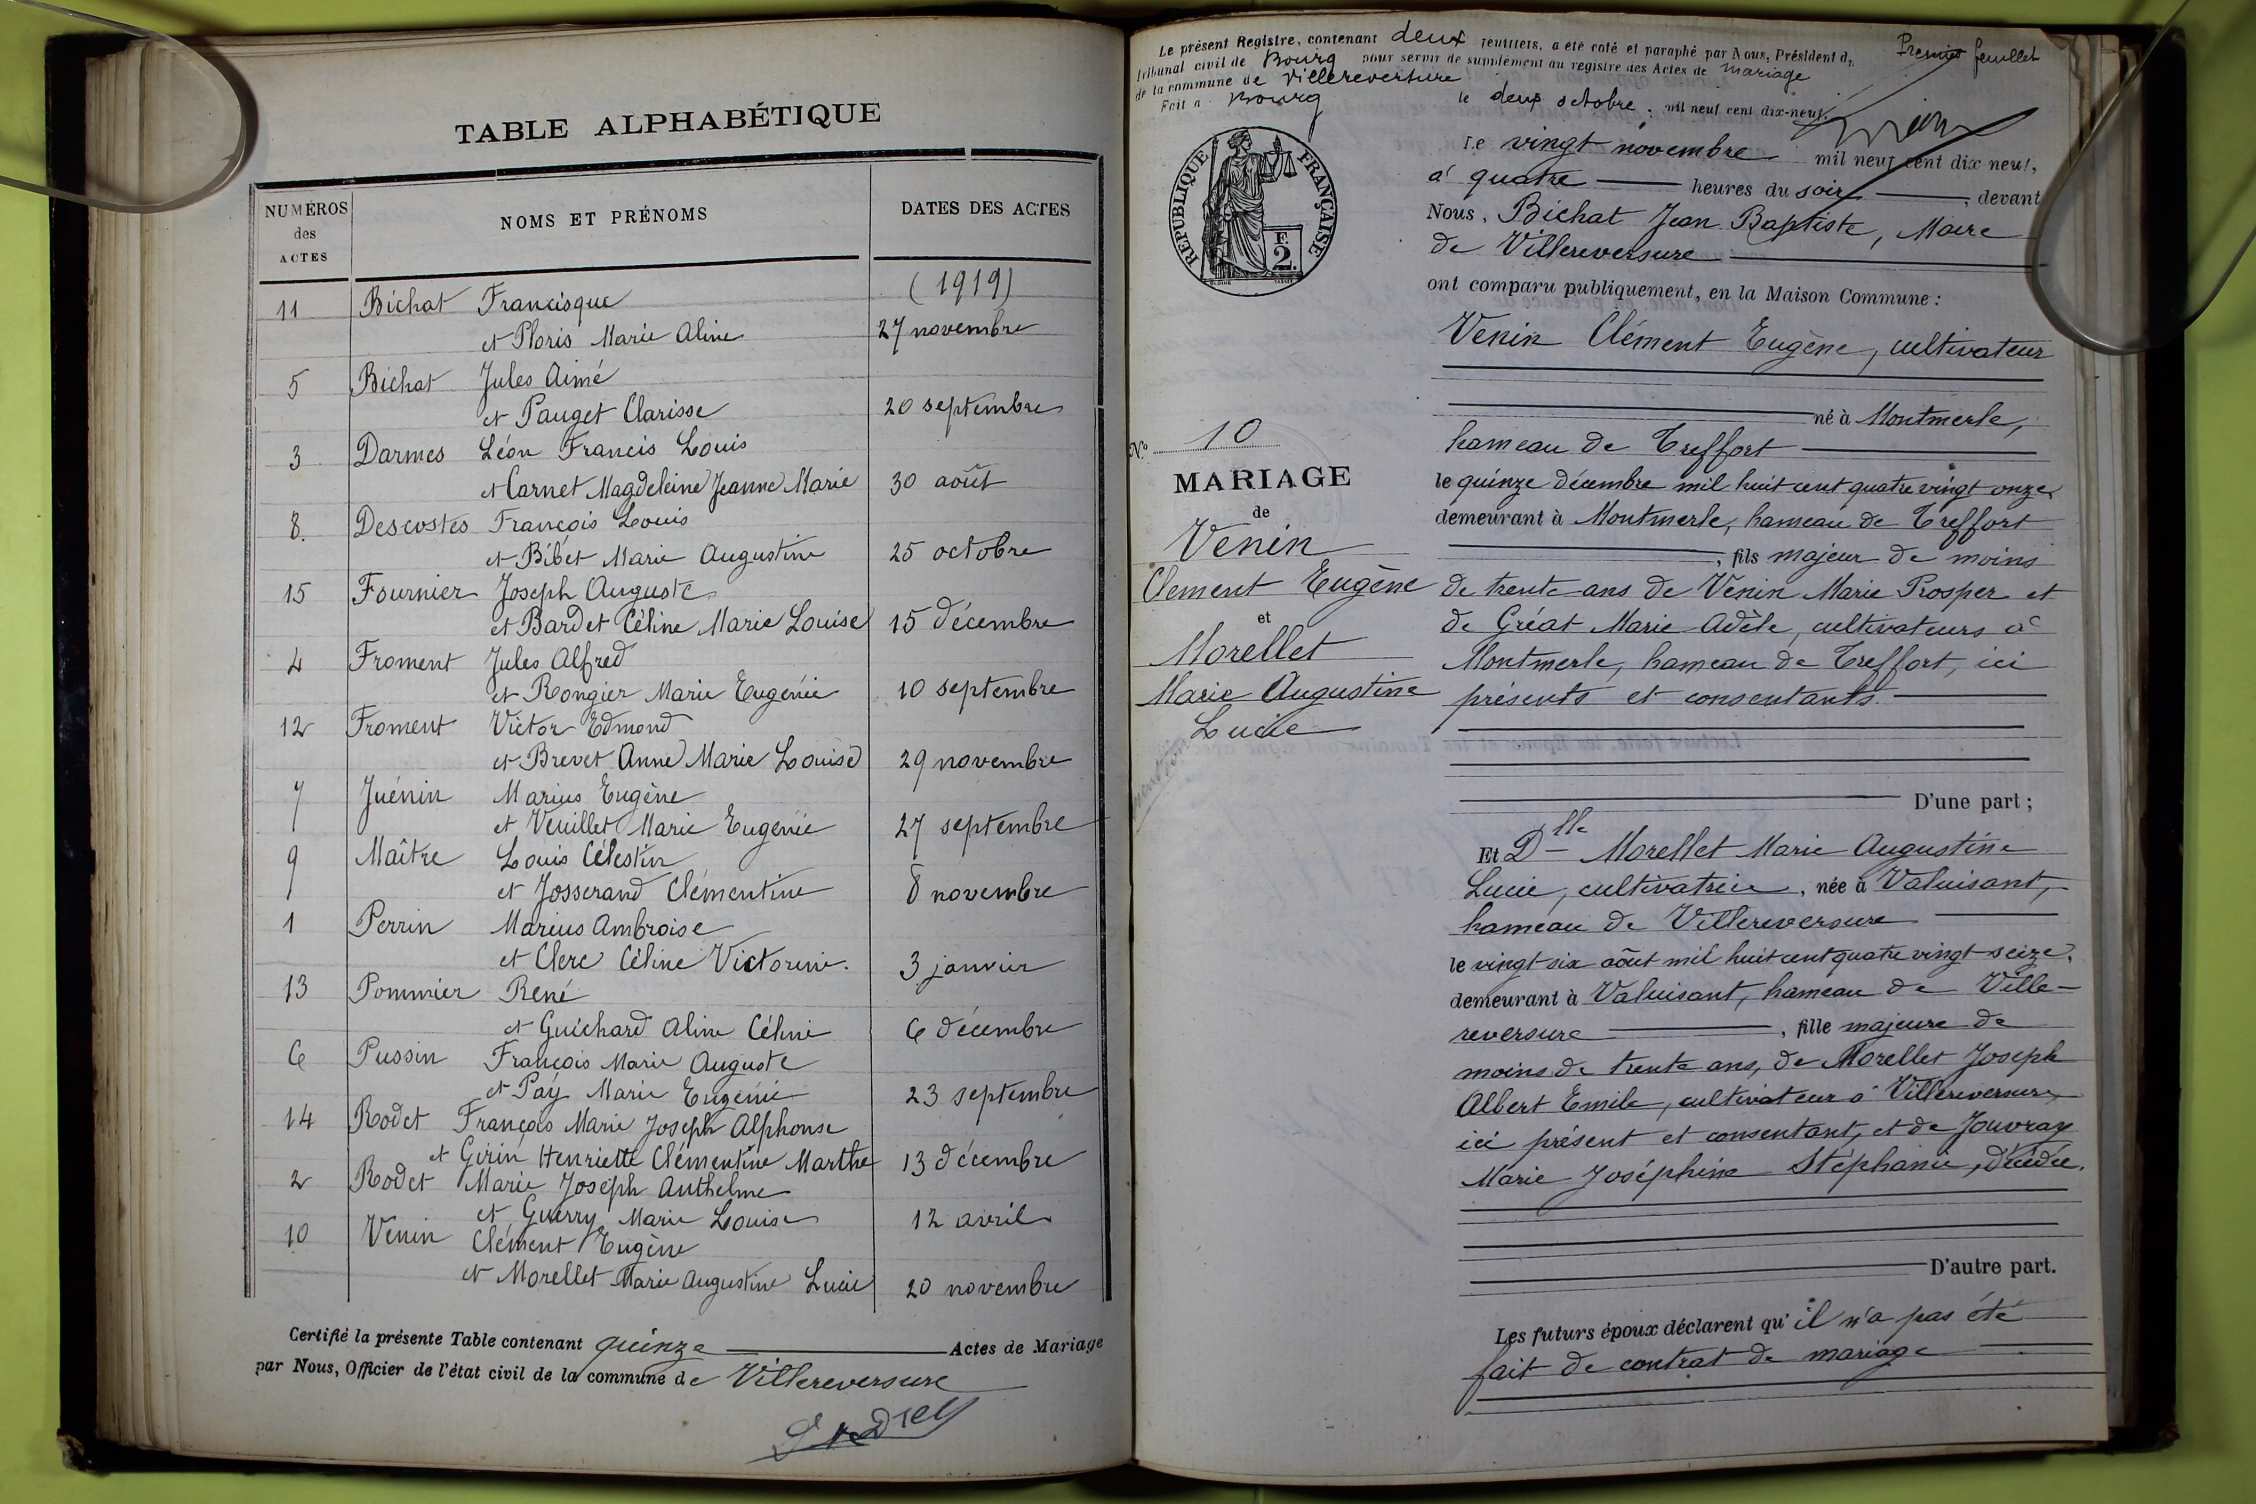 TABLE ALPHABÉTIQUE
NUMÉROS des ACTES NOMS ET PRÉNOMS DATES DES ACTES
(1919)
11 Bichat Francisque
et Ploris Marie Aline 27 novembre
5 Bichat Jules Aimé
et Pauget Clarisse 20 septembre
3 Darmes Léon Francis Louis
et Carnet Magdeleine Jeanne Marie 30 août
8. Descostes François Louis
et Bibet Marie Augustine 25 octobre
15 Fournier Joseph Auguste
et Bardet Céline Marie Louise 15 décembre
4 Froment Jules Alfred
et Rongier Marie Eugénie 10 septembre
12 Froment Victor Edmond
et Brevet Anne Marie Louise 29 novembre
7 Juénin Marius Eugène
et Veuillet Marie Eugénie 27 septembre
9 Maître Louis Célestin
et Josserand Clémentine 8 novembre
1 Perrin Marius Ambroise
et Clerc Céline Victorine. 3 janvier
13 Pommier René
et Guichard Aline Céline 6 décembre
6 Pussin François Marie Auguste
et Pay Marie Eugénie 23 septembre
14 Rodet François Marie Joseph Alphonse
et Girin Henriette Clémentine Marthe 13 décembre
2 Rodet Marie Joseph Anthelme
et Guerry Marie Louise 12 avril
10 Venin Clément Eugène
et Morellet Marie Augustine Lucie 20 novembre
Certifié la présente Table contenant quinze Actes de Mariage
par Nous, Officier de l'état civil de la commune de Villereversure
Le présent Registre, contenant deux feuillets, a été coté et paraphé par Nous, Président du
Tribunal civil de Bourg pour servir de supplément au registre des Actes de mariage
de la commune de Villereversure
Fait à Bourg le deux octobre, mil neuf cent dix-neuf.
Premier feuillet
RÉPUBLIQUE FRANÇAISE
F.
2.
Le vingt novembre mil neuf cent dix neuf,
à quatre heures du soir, devant
Nous, Bichat Jean Baptiste, Maire
de Villereversure
ont comparu publiquement, en la Maison Commune :
Venin Clément Eugène, cultivateur
né à Montmerle,
hameau de Treffort
le quinze décembre mil huit cent quatre vingt onze
demeurant à Montmerle, hameau de Treffort
, fils majeur de moins
de trente ans de Venin Marie Prosper et
de Gréat Marie Adèle, cultivateurs à
Montmerle, hameau de Treffort, ici
présents et consentants.
D'une part ;
No 10
MARIAGE
de
Venin
Clement Eugène
et
Morellet
Marie Augustine
Lucie
mention
Et Dlle Morellet Marie Augustine
Lucie, cultivatrice, née à Valuisant,
hameau de Villereversure
le vingt six août mil huit cent quatre vingt seize,
demeurant à Valuisant, hameau de Ville-
reversure, fille majeure de
moins de trente ans, de Morellet Joseph
Albert Emile, cultivateur à Villereversure,
ici présent et consentant, et de Jouvray
Marie Joséphine Stéphanie, décédée.
D'autre part.
Les futurs époux déclarent qu'il n'a pas été
fait de contrat de mariage